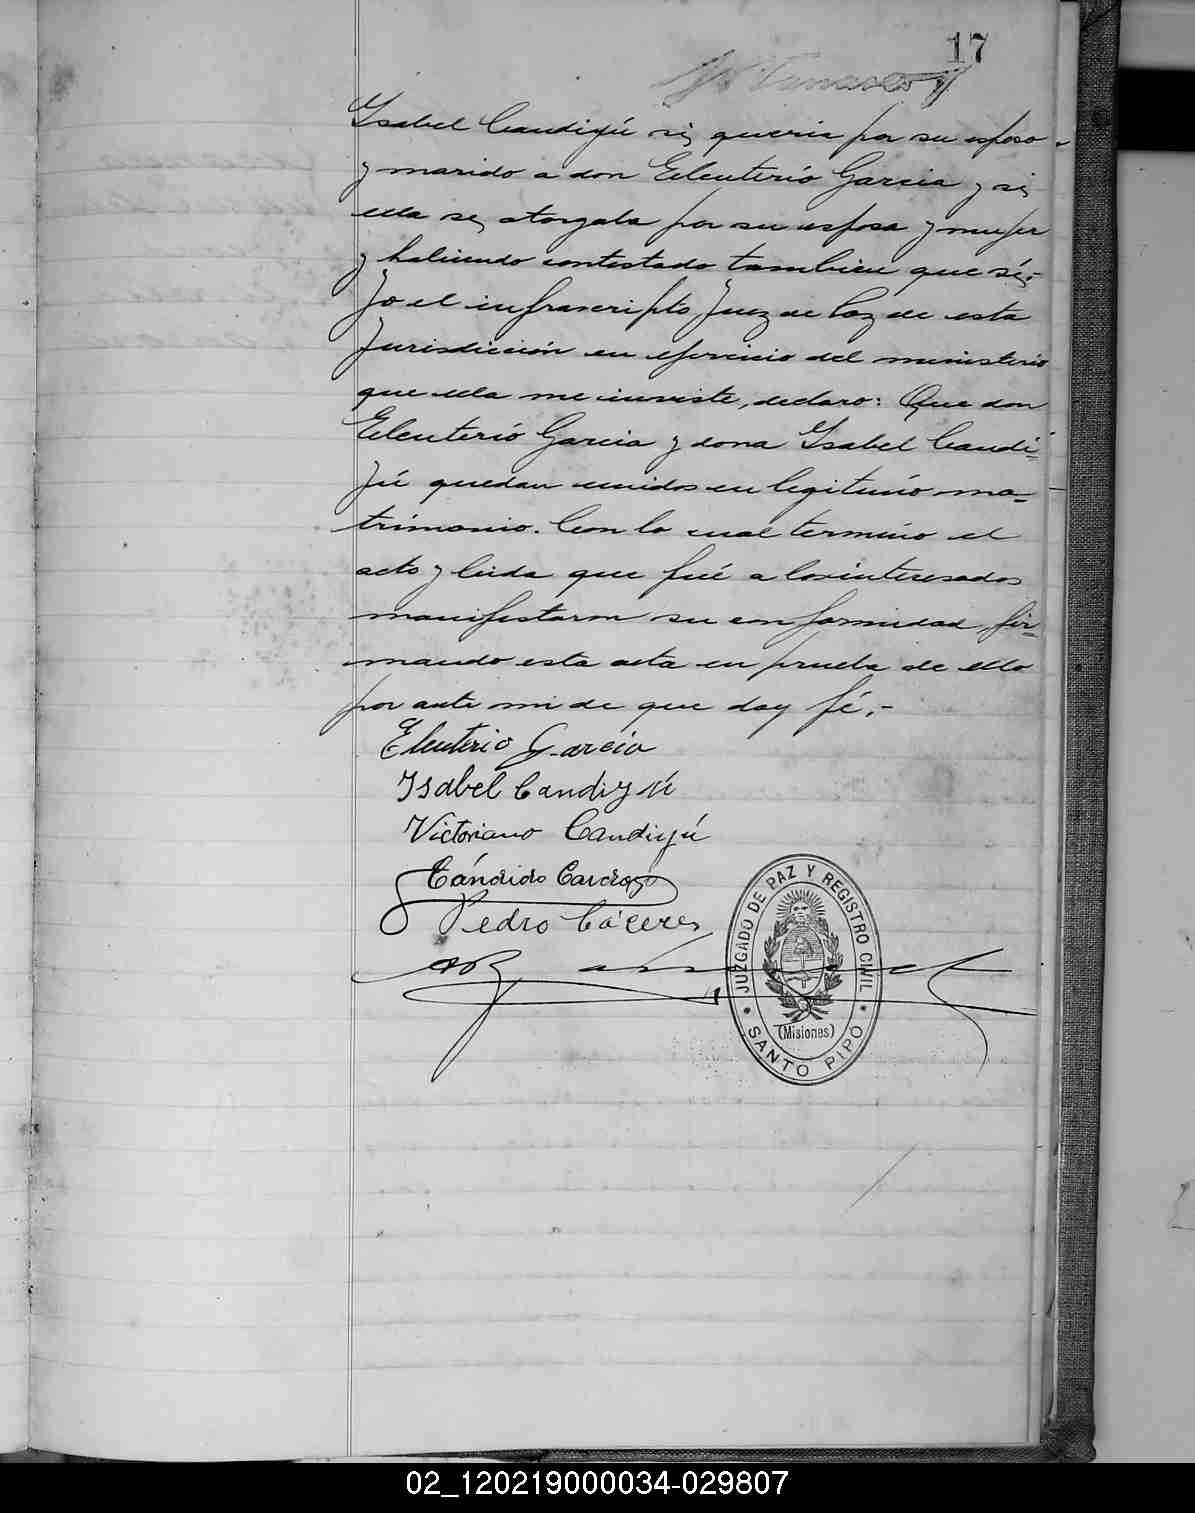 17
Isabel Candiyú si, queria por su esposo
y marido a don Eleuterio Garcia y si,
ella se, otorgaba por su esposa y mujer
y habiendo contestado tambien que sí;-
Yo el infrascripto Juez de Paz de esta
Jurisdicción en ejercicio del ministerio
que ella me inviste, declaro: Que don
Eleuterio Garcia y dona Isabel Candi=
yú quedan unidos en legitimo ma=
trimonio. Con lo cual termino el
acto y leida que fué a los interesados
manifestaron su conformidad, fir=
mando esta acta en prueba de ello
por ante mi de que doy fé.-
Eleuterio Garcia
Isabel Candiyú
Victoriano Candiyú
Cándido Cardozo
Pedro Cáceres
JUZGADO DE PAZ Y REGISTRO CIVIL
(Misiones)
SANTO PIPÓ
02_120219000034-029807